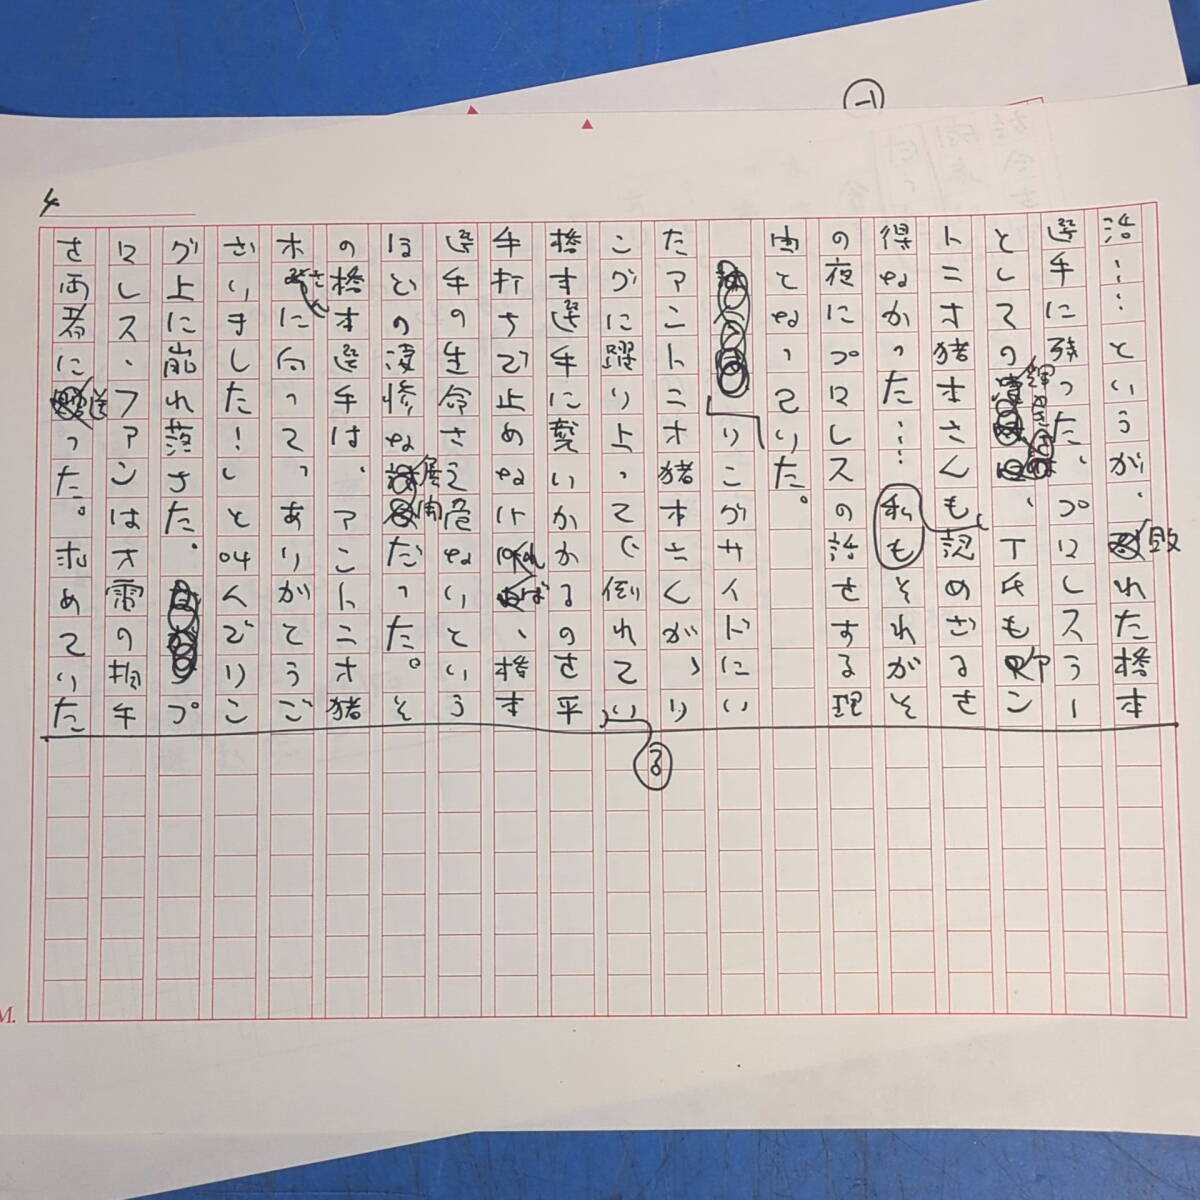 4
話……というが、敗れた橋本
選手に残った、プロレスラー
としての輝きは、T氏もアン
トニオ猪木さんも認めざるを
得なかった……私もそれがそ
の夜にプロレスの話をする理
由となっていた。
リングサイドにい
たアントニオ猪木さんが、リ
ングに躍り上って、倒れている
橋本選手に襲いかかるのを平
手打ちで止めなければ、橋本
選手の生命さえ危ないという
ほどの凄惨な展開だった。そ
の橋本選手は、アントニオ猪
木さんに向って、ありがとうご
ざいました！」と叫んでリン
グ上に崩れ落ちた。プ
ロレス・ファンは大電の拍手
を両者に送った。求めていた